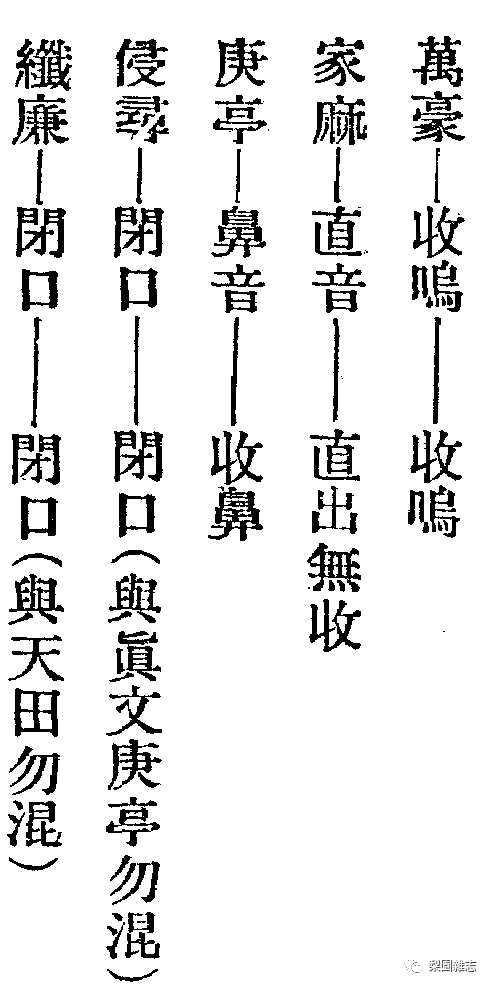 萬豪—收嗚——收嗚
家麻—直音——直出無收
庚亭—鼻音——收鼻
侵尋—閉口——閉口(與眞文庚亭勿混)
纖廉—閉口——閉口(與天田勿混)
梨園雜志